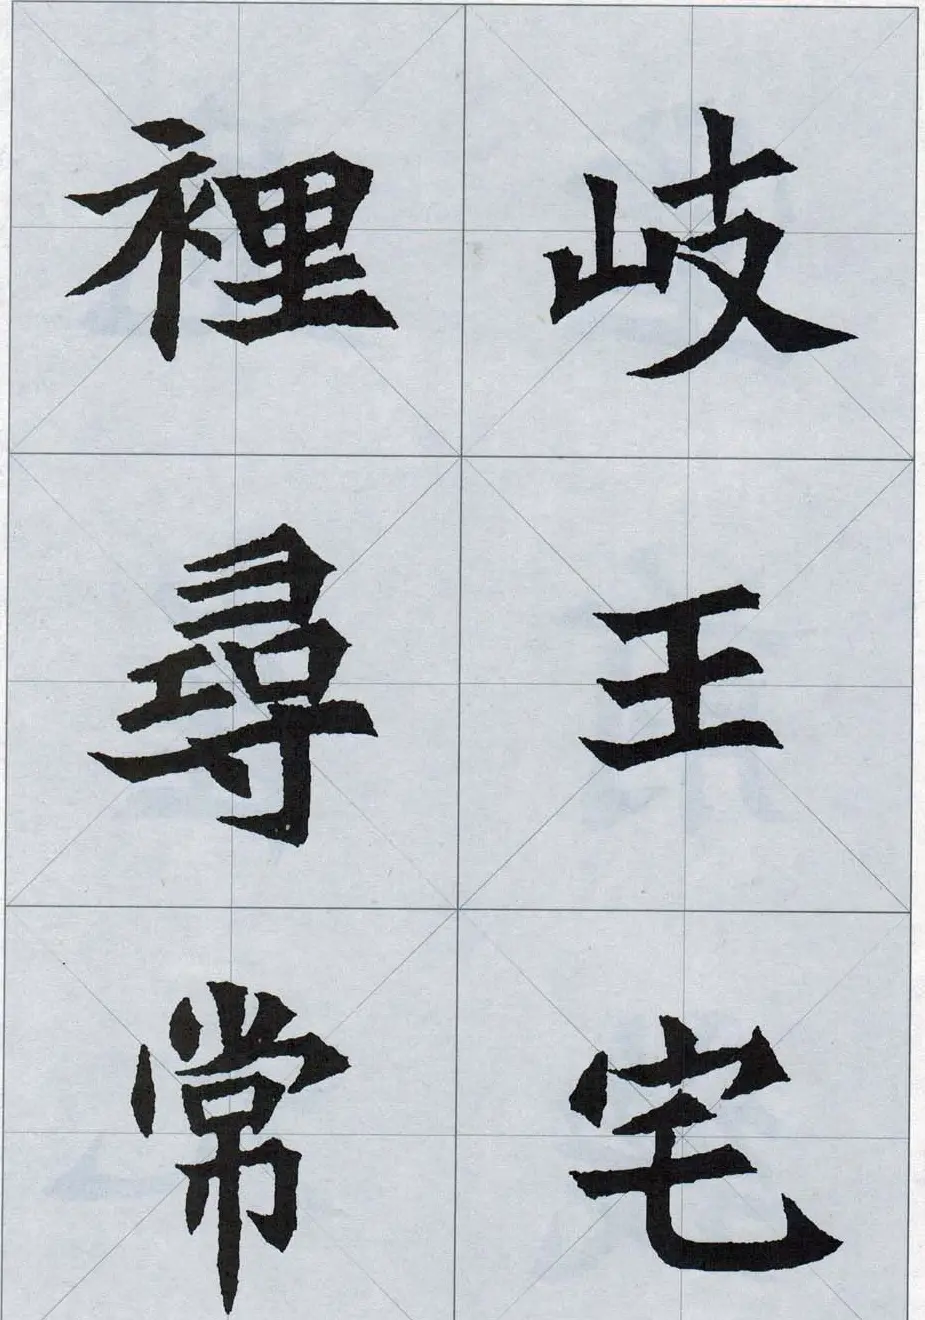 岐王宅
裡尋常